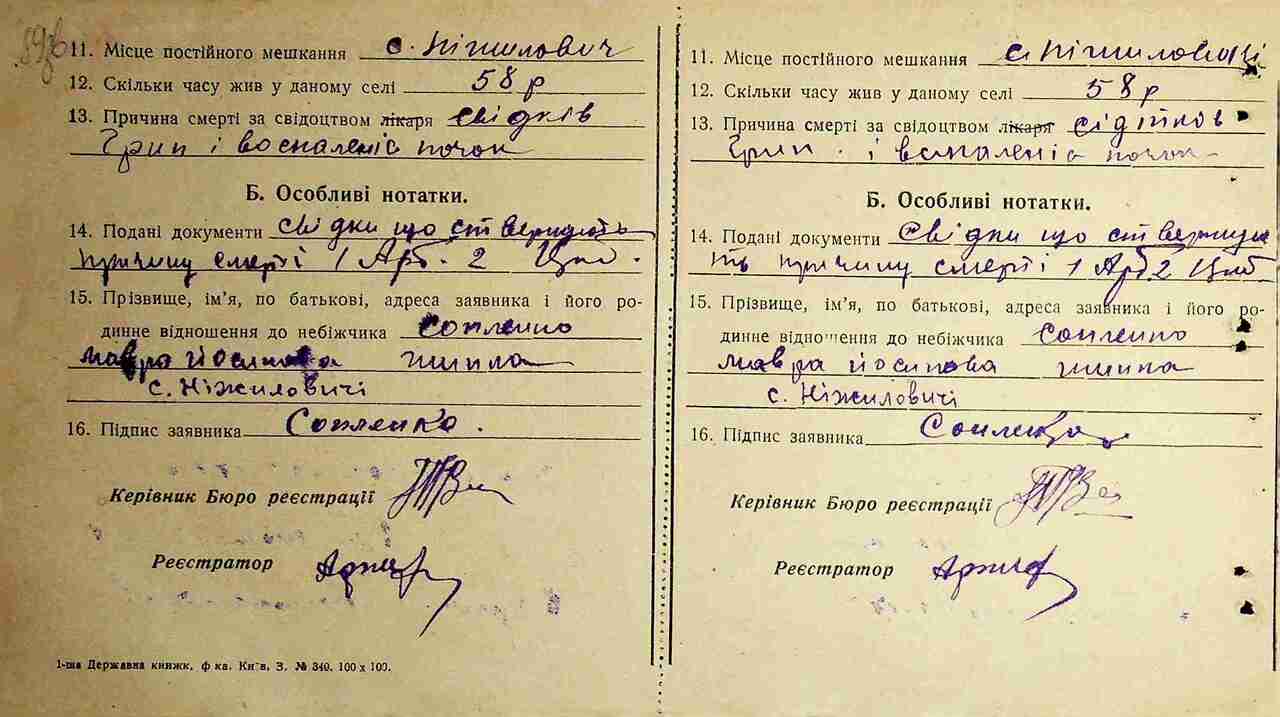 11. Місце постійного мешкання с. Ніжилович
12. Скільки часу жив у даному селі 58 р
13. Причина смерті за свідоцтвом лікаря свідків
Грип і воспаленіє почок
Б. Особливі нотатки.
14. Подані документи свідки що стверждють
причину смерті 1 Арт. 2
15. Прізвище, ім’я, по батькові, адреса заявника і його ро-
динне відношення до небіжчика Сопленко
Мавра Йосипова жинка
с. Ніжиловичі
16. Підпис заявника Сопленко.
Керівник Бюро реєстрації
Реєстратор
1-ша Державна книжк. ф-ка. Київ, З. № 340. 100 х 100.
11. Місце постійного мешкання с. Ніжиловичі
12. Скільки часу жив у даному селі 58 р
13. Причина смерті за свідоцтвом лікаря
Грип і воспаленіє почок
Б. Особливі нотатки.
14. Подані документи Свідки що ствержду
ть причину смерті 1 Арт 2
15. Прізвище, ім’я, по батькові, адреса заявника і його ро-
динне відношення до небіжчика Сопленко
Мавра Йосипова жинка
с. Ніжиловичі
16. Підпис заявника Сопленко
Керівник Бюро реєстрації
Реєстратор